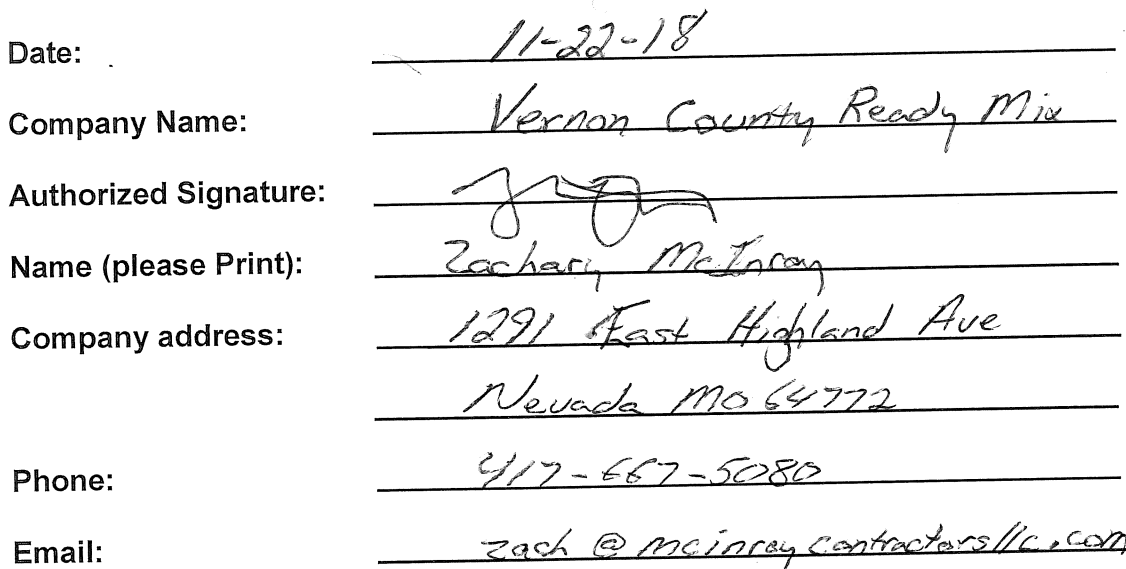 Date: 11-22-18
Company Name: Vernon County Ready Mix
Authorized Signature:
Name (please Print): Zachary McInroy
Company address: 1291 East Highland Ave
Nevada MO 64772
Phone: 417-667-5080
Email: zach@mcinroycontractorsllc.com